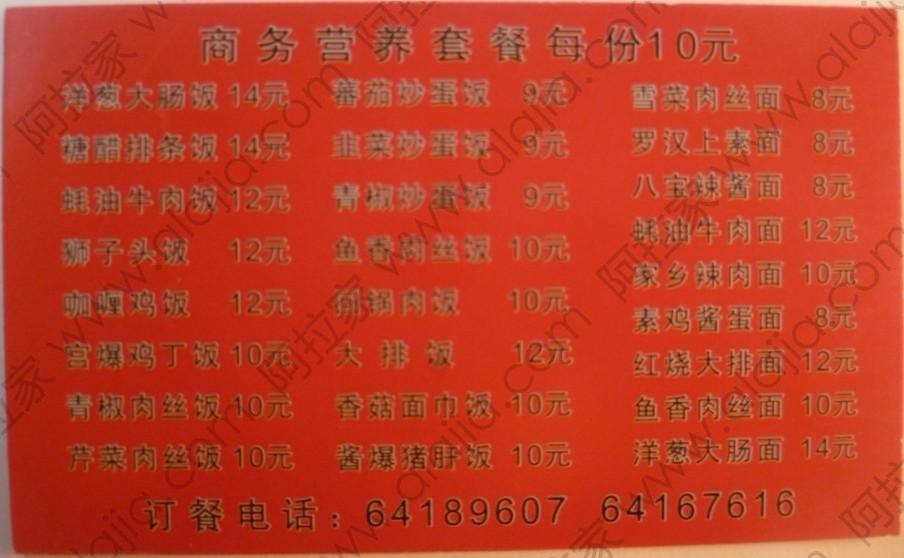 商务营养套餐每份10元
洋葱大肠饭 14元
糖醋排条饭 14元
蚝油牛肉饭 12元
狮子头饭 12元
咖喱鸡饭 12元
宫爆鸡丁饭 10元
青椒肉丝饭 10元
芹菜肉丝饭 10元
蕃茄炒蛋饭 9元
韭菜炒蛋饭 9元
青椒炒蛋饭 9元
鱼香肉丝饭 10元
回锅肉饭 10元
大排饭 12元
香菇面巾饭 10元
酱爆猪肝饭 10元
雪菜肉丝面 8元
罗汉上素面 8元
八宝辣酱面 8元
蚝油牛肉面 12元
家乡辣肉面 10元
素鸡酱蛋面 8元
红烧大排面 12元
鱼香肉丝面 10元
洋葱大肠面 14元
订餐电话：64189607 64167616
阿拉家 www.alajia.com